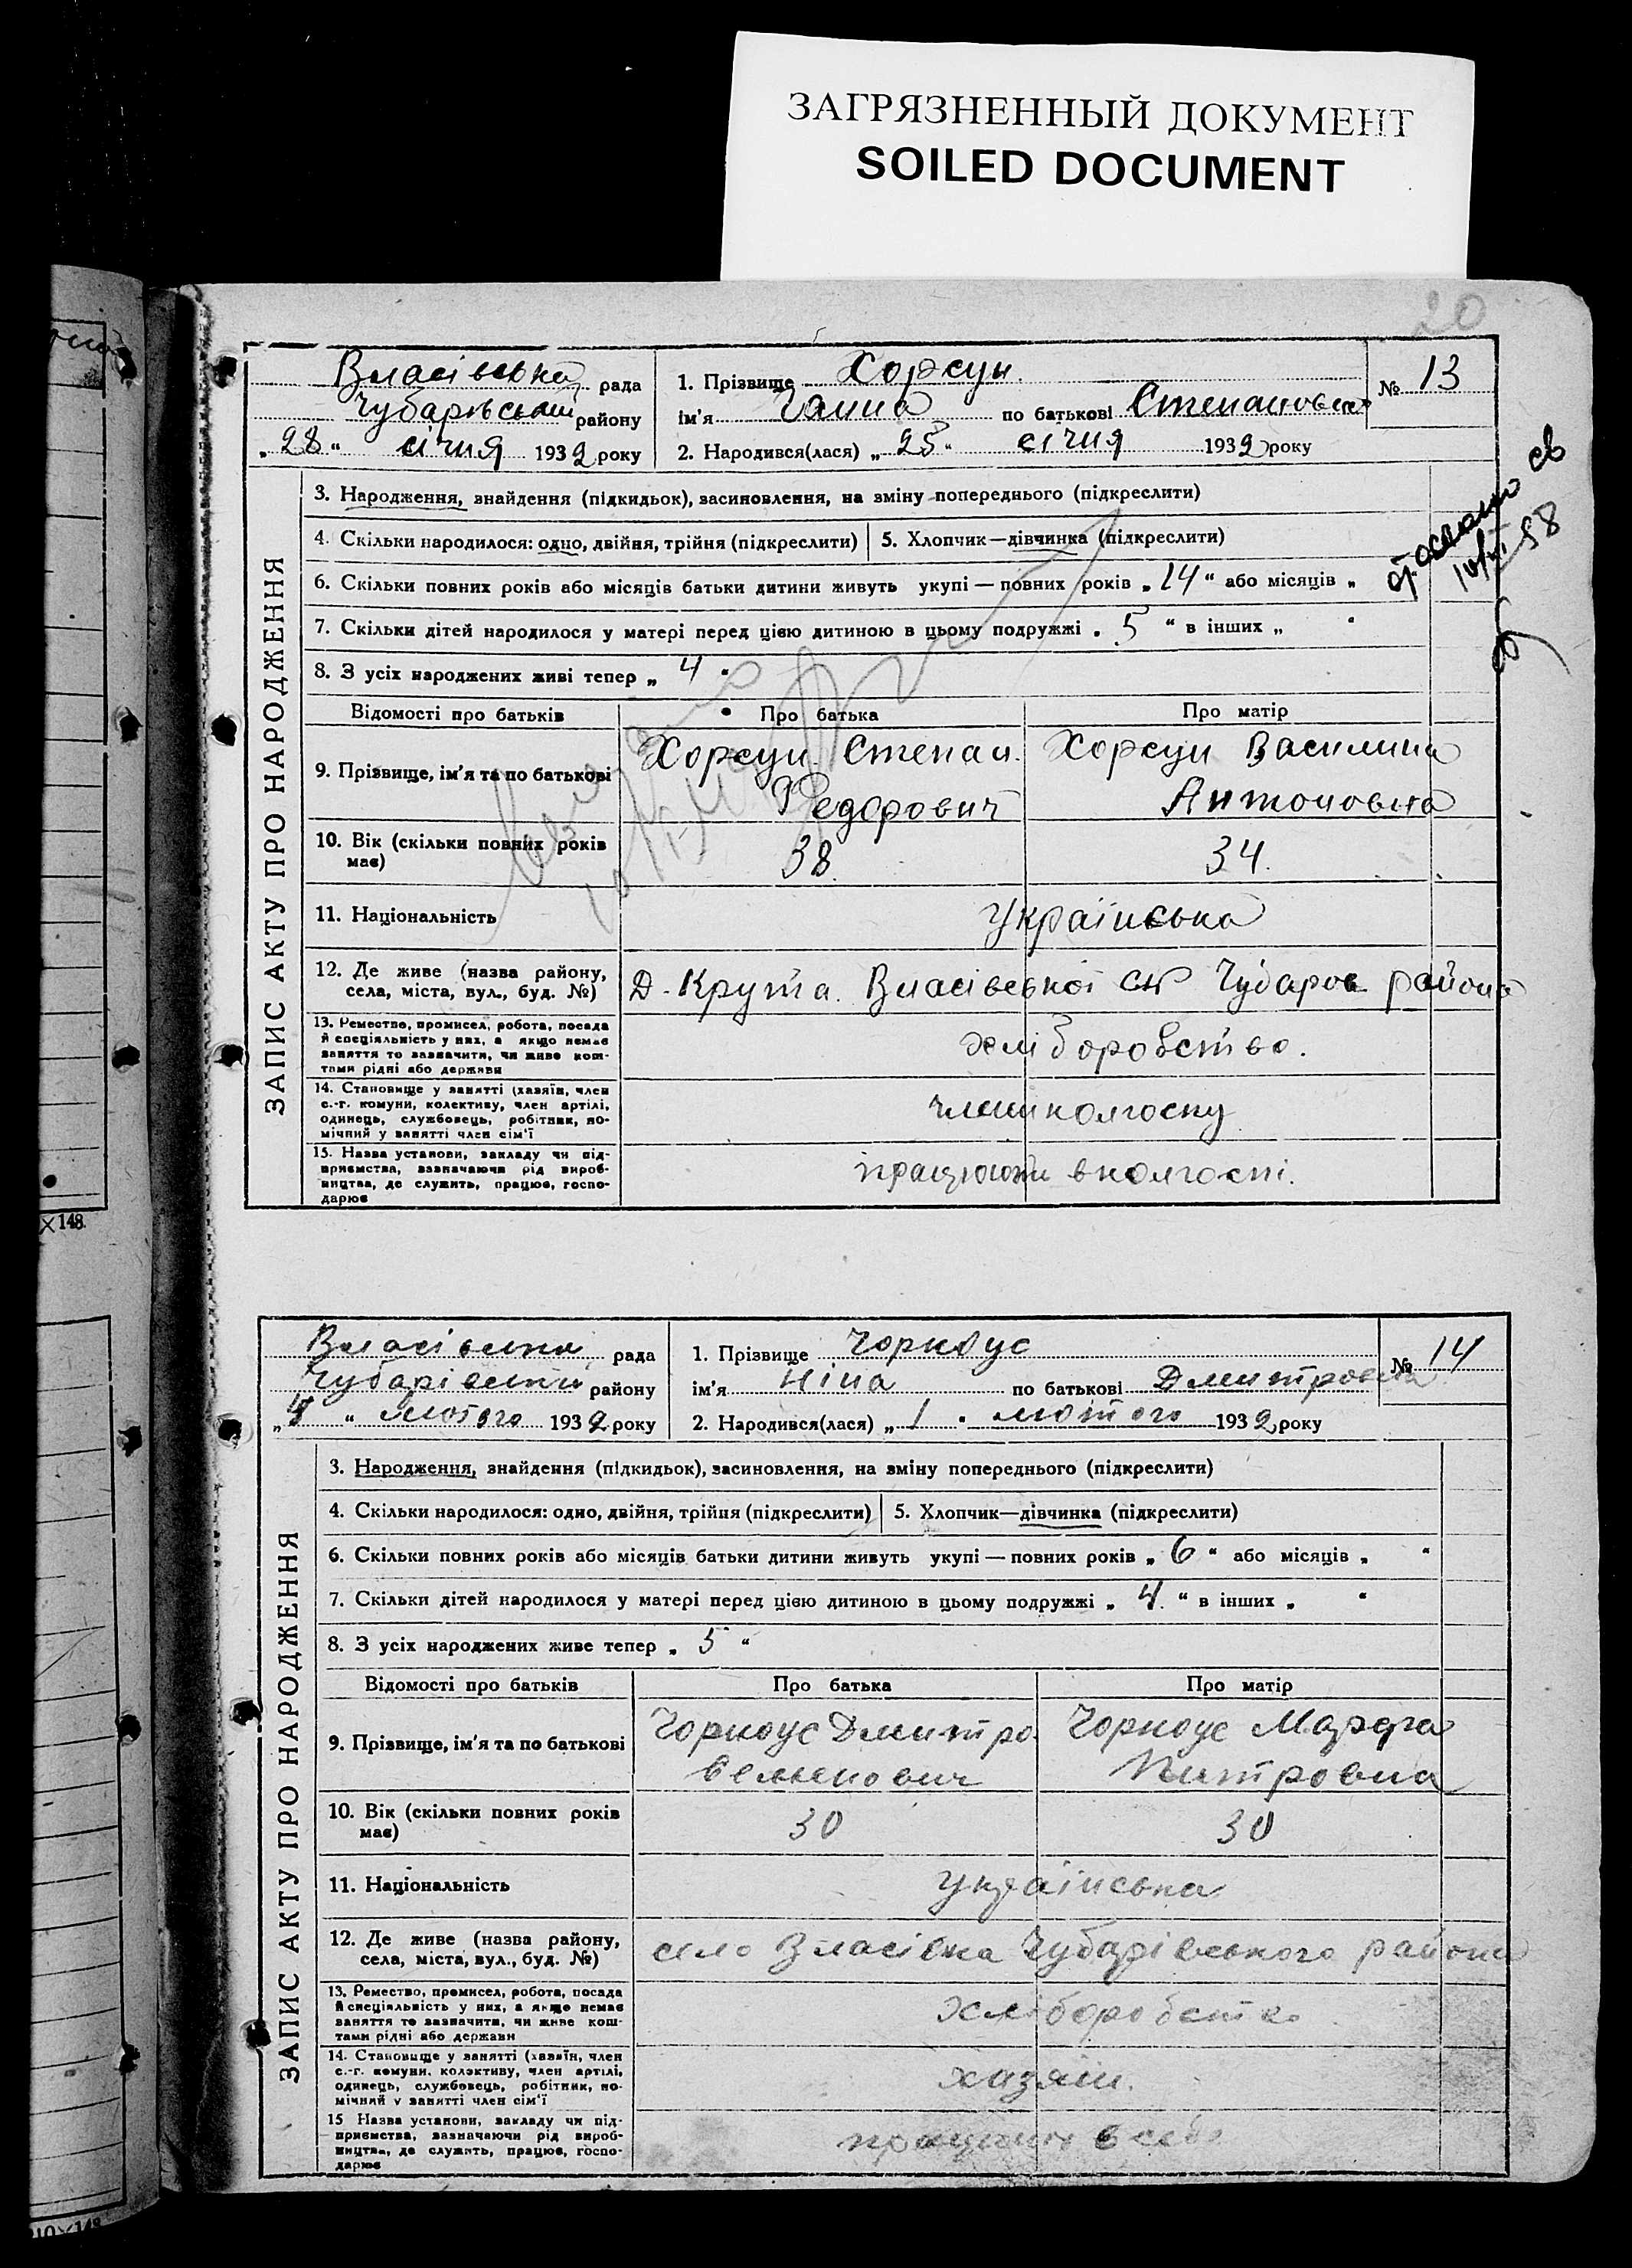 ЗАГРЯЗНЕННЫЙ ДОКУМЕНТ
SOILED DOCUMENT
20
Власівська рада
Чубарівський району
„ 28 “ січня 1932 року
1. Прізвище Хорсун
ім'я Ганна по батькові Степановна
2. Народився(лася) „ 25 “ січня 1932 року
№ 13
ЗАПИС АКТУ ПРО НАРОДЖЕННЯ
3. Народження, знайдення (підкидьок), засиновлення, на зміну попереднього (підкреслити)
4. Скільки народилося: одно, двійня, трійня (підкреслити) 5. Хлопчик—дівчинка (підкреслити)
6. Скільки повних років або місяців батьки дитини живуть укупі — повних років „ 14 “ або місяців „
7. Скільки дітей народилося у матері перед цією дитиною в цьому подружжі „ 5 “ в інших „ “
8. З усіх народжених живі тепер „ 4 “
Відомості про батьків Про батька Про матір
9. Прізвище, ім'я та по батькові
Хорсун Степан Федорович
Хорсун Василина Антоновна
10. Вік (скільки повних років має) 38 34.
11. Національність Українська
12. Де живе (назва району, села, міста, вул., буд. №) Д. Крута Власівської С/Р Чубаров района
13. Ремество, промисел, робота, посада
й спеціяльність у них, а якщо немає
заняття то зазначити, чи живе кош-
тами рідні або держави
хліборобство.
14. Становище у занятті (хазяїн, член
с.-г. комуни, колективу, член артілі,
одинець, службовець, робітник, по-
мічний у занятті член сім'ї
член колгоспу
15. Назва установи, закладу чи під-
приємства, зазначаючи рід вироб-
ництва, де служить, працює, госпо-
дарює
працюют в колгоспі.
×148
Власівська рада
Чубарівський району
„ 4 “ лютого 1932 року
1. Прізвище Чорноус
ім'я Ніна по батькові Дмитровна
2. Народився(лася) „ 1 “ лютого 1932 року
№ 14
ЗАПИС АКТУ ПРО НАРОДЖЕННЯ
3. Народження, знайдення (підкидьок), засиновлення, на зміну попереднього (підкреслити)
4. Скільки народилося: одно, двійня, трійня (підкреслити) 5. Хлопчик—дівчинка (підкреслити)
6. Скільки повних років або місяців батьки дитини живуть укупі — повних років „ 6 “ або місяців „ “
7. Скільки дітей народилося у матері перед цією дитиною в цьому подружжі „ 4 “ в інших „ “
8. З усіх народжених живе тепер „ 5 “
Відомості про батьків Про батька Про матір
9. Прізвище, ім'я та по батькові
Чорноус Дмитро
Чорноус Марфа
10. Вік (скільки повних років має) 30 30
11. Національність українська
12. Де живе (назва району, села, міста, вул., буд. №) село Власівка Чубарівського района
13. Ремество, промисел, робота, посада
й спеціяльність у них, а якщо немає
заняття то зазначити, чи живе кош-
тами рідні або держави
хліборобство
14. Становище у занятті (хазяїн, член
с.-г. комуни, колективу, член артілі,
одинець, службовець, робітник, по-
мічний у занятті член сім'ї
хазяїн.
15 Назва установи, закладу чи під-
приємства, зазначаючи рід вироб-
ництва, де служить, працює, госпо-
дарює